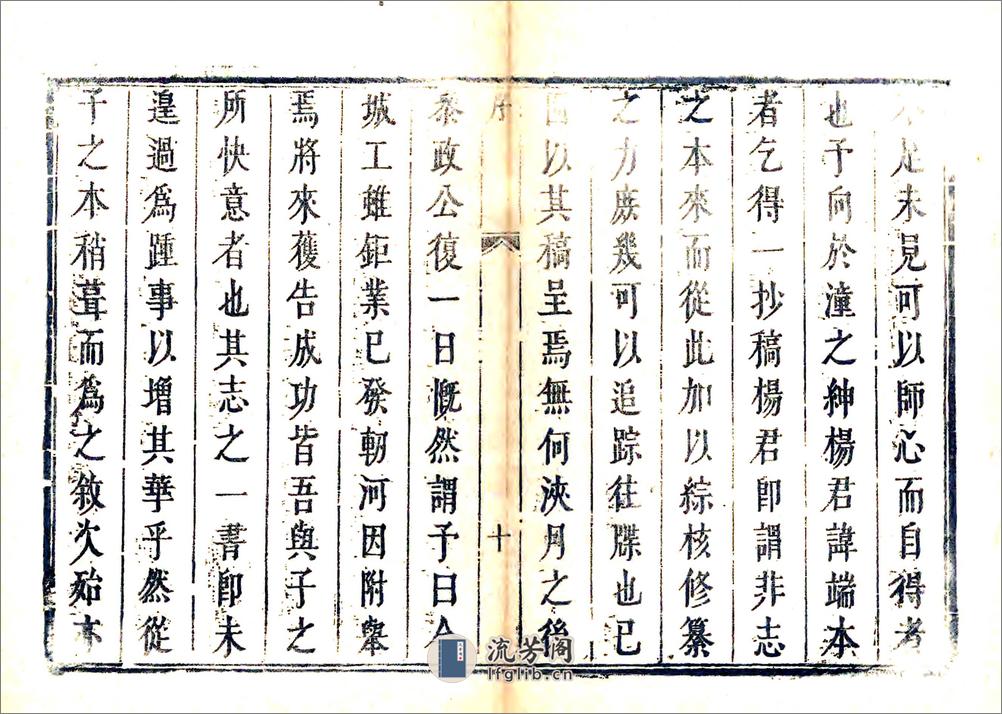 足未見可以師心而自得者
也予向於潼之紳楊君諱端本
者乞得一抄稿楊君即謂非志
之本來而從此加以綜核修纂
之力庶幾可以追踪往牒也已
以其稿呈焉無何浹月之後
序
十
泰政公復一日慨然謂予曰今
城工雖鉅業已發軔河因附舉
焉將來獲告成功皆吾與子之
所快意者也其志之一書即未
遑過為踵事以增其華乎然從
子之本稍葺而為之敘次殆亦
流芳阁
lfglib.cn